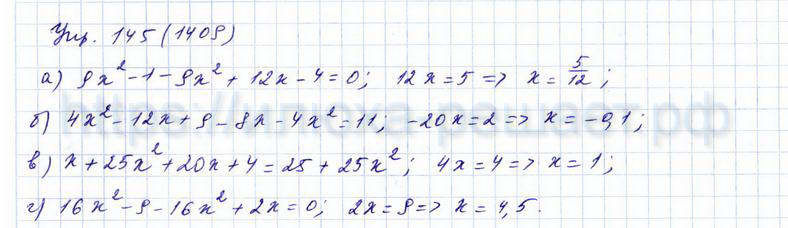 Упр. 145 (1409)
а) 9x² - 1 - 9x² + 12x - 4 = 0; 12x = 5 => x = 5/12;
б) 4x² - 12x + 9 - 8x - 4x² = 11; -20x = 2 => x = -0,1;
в) x + 25x² + 20x + 4 = 25 + 25x²; 4x = 4 => x = 1;
г) 16x² - 9 - 16x² + 2x = 0; 2x = 9 => x = 4,5.